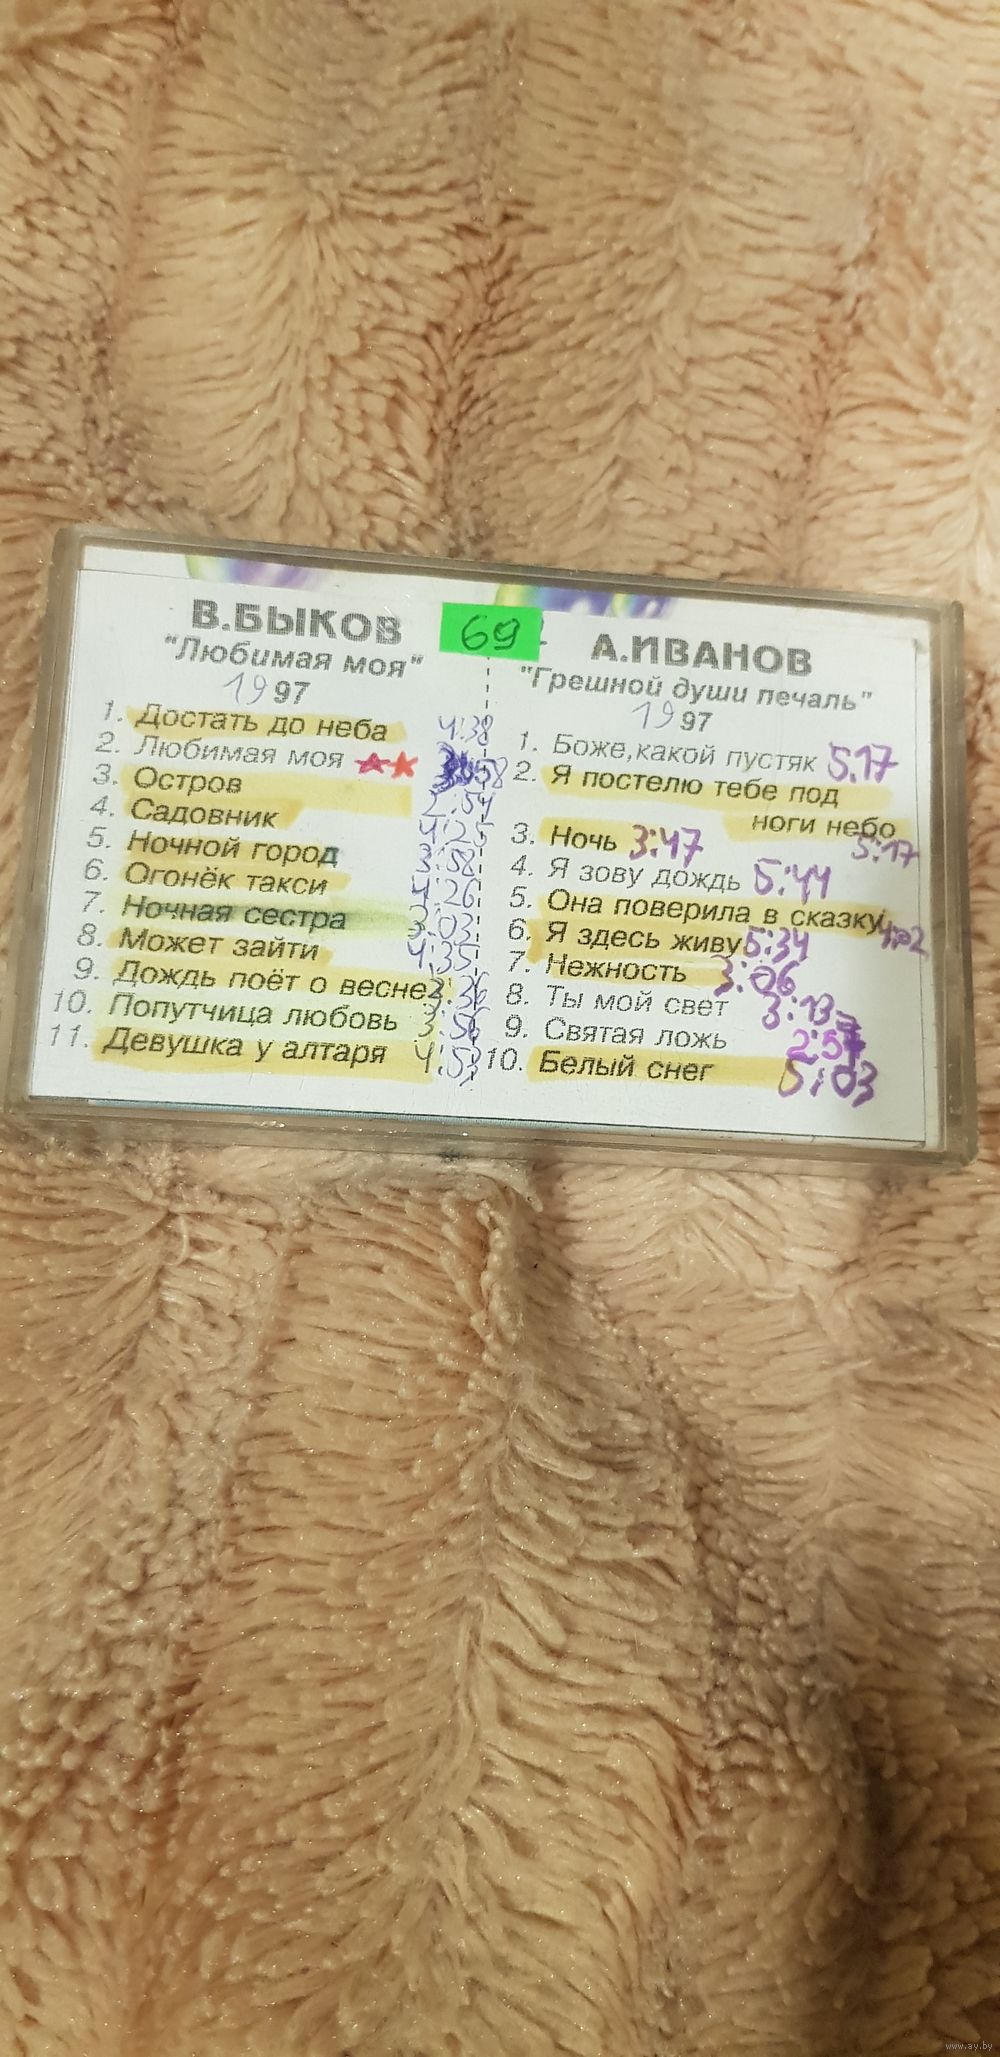 69
В.БЫКОВ
"Любимая моя"
1997
1. Достать до неба 4:38
2. Любимая моя
3. Остров 2:54
4. Садовник 4:25
5. Ночной город 3:58
6. Огонёк такси 4:26
7. Ночная сестра 3:03
8. Может зайти 4:35
9. Дождь поёт о весне
10. Попутчица любовь 3:56
11. Девушка у алтаря 4:53
А.ИВАНОВ
"Грешной души печаль"
1997
1. Боже,какой пустяк 5.17
2. Я постелю тебе под
ноги небо
5:17
3. Ночь 3:47
4. Я зову дождь 5:44
5. Она поверила в сказку
6. Я здесь живу 5:34
7. Нежность 3:06
8. Ты мой свет 3:13
9. Святая ложь
10. Белый снег 5:03
www.ay.by